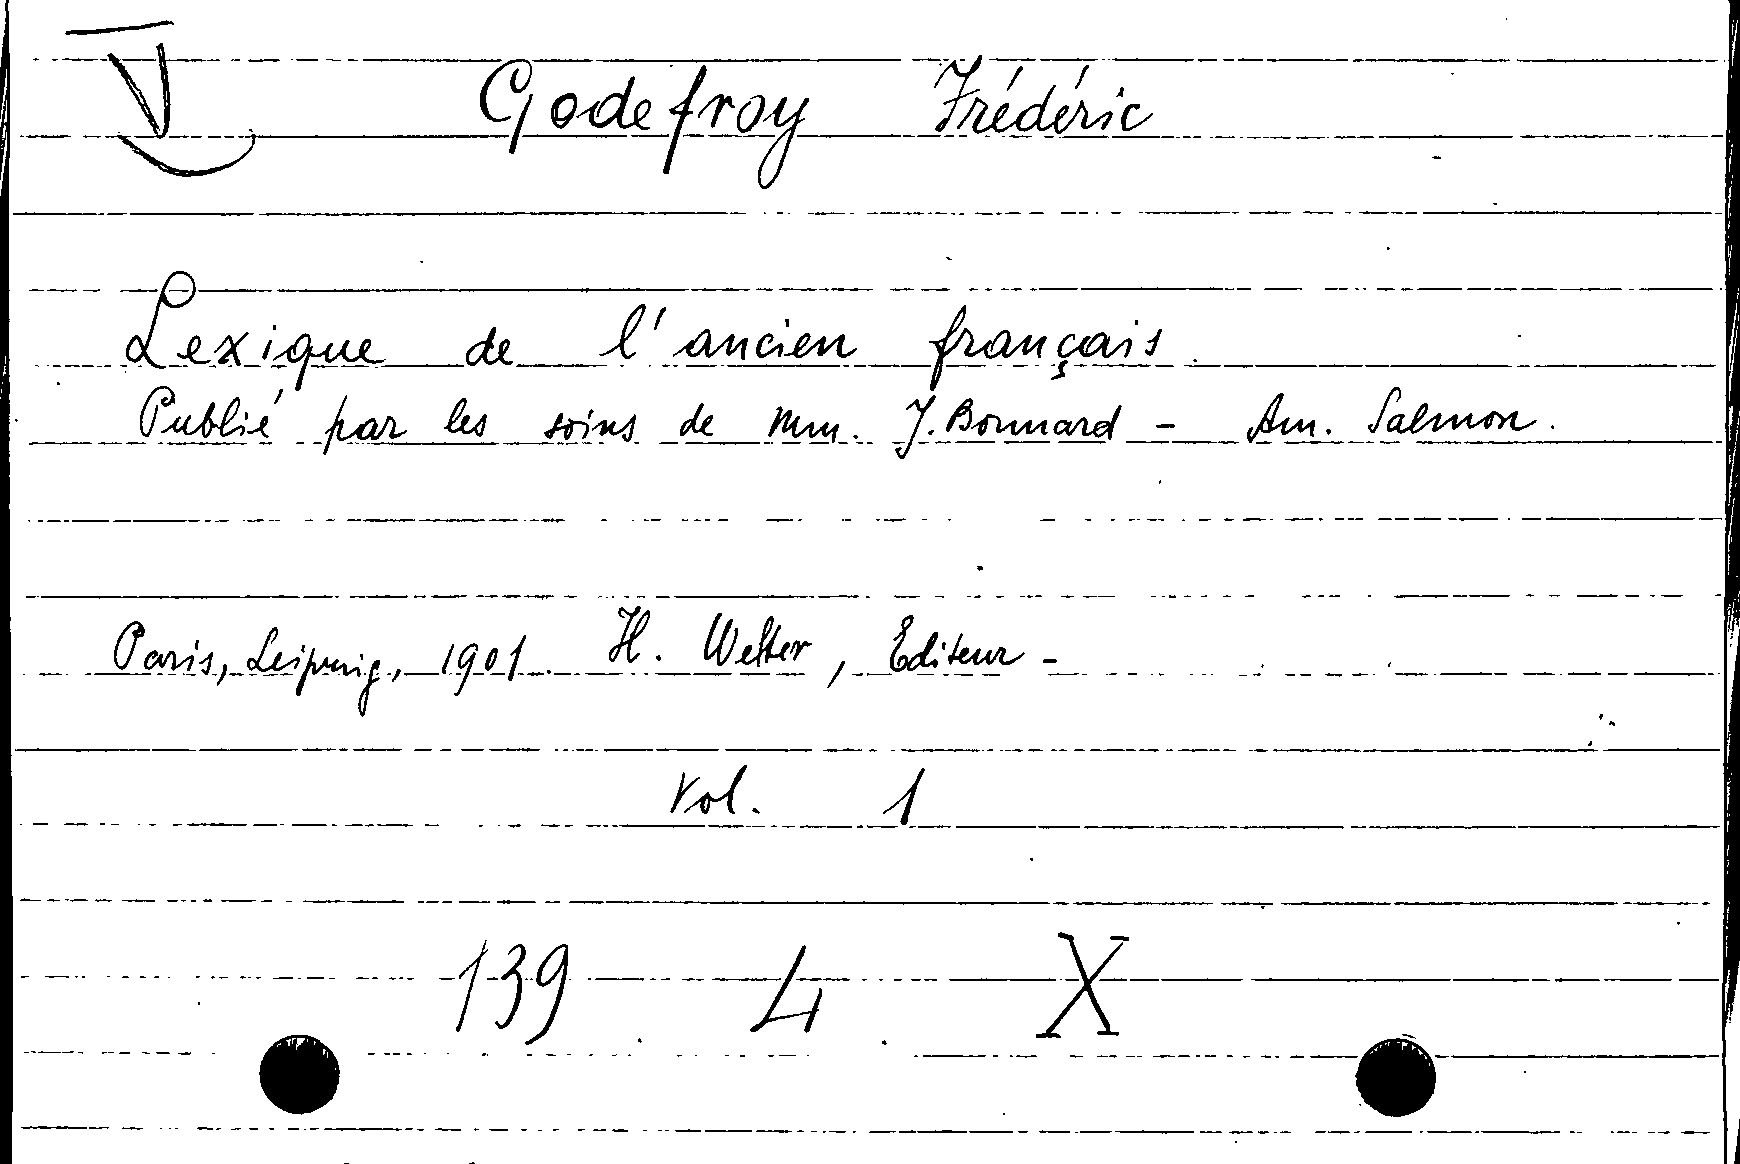 V Godefroy Frédéric
Lexique de l'ancien français.
Publié par les soins de MM. J. Bonnard - Am. Salmon.
Paris, Leipzig, 1901. H. Welter, Éditeur -
Vol. 1
139 4 X